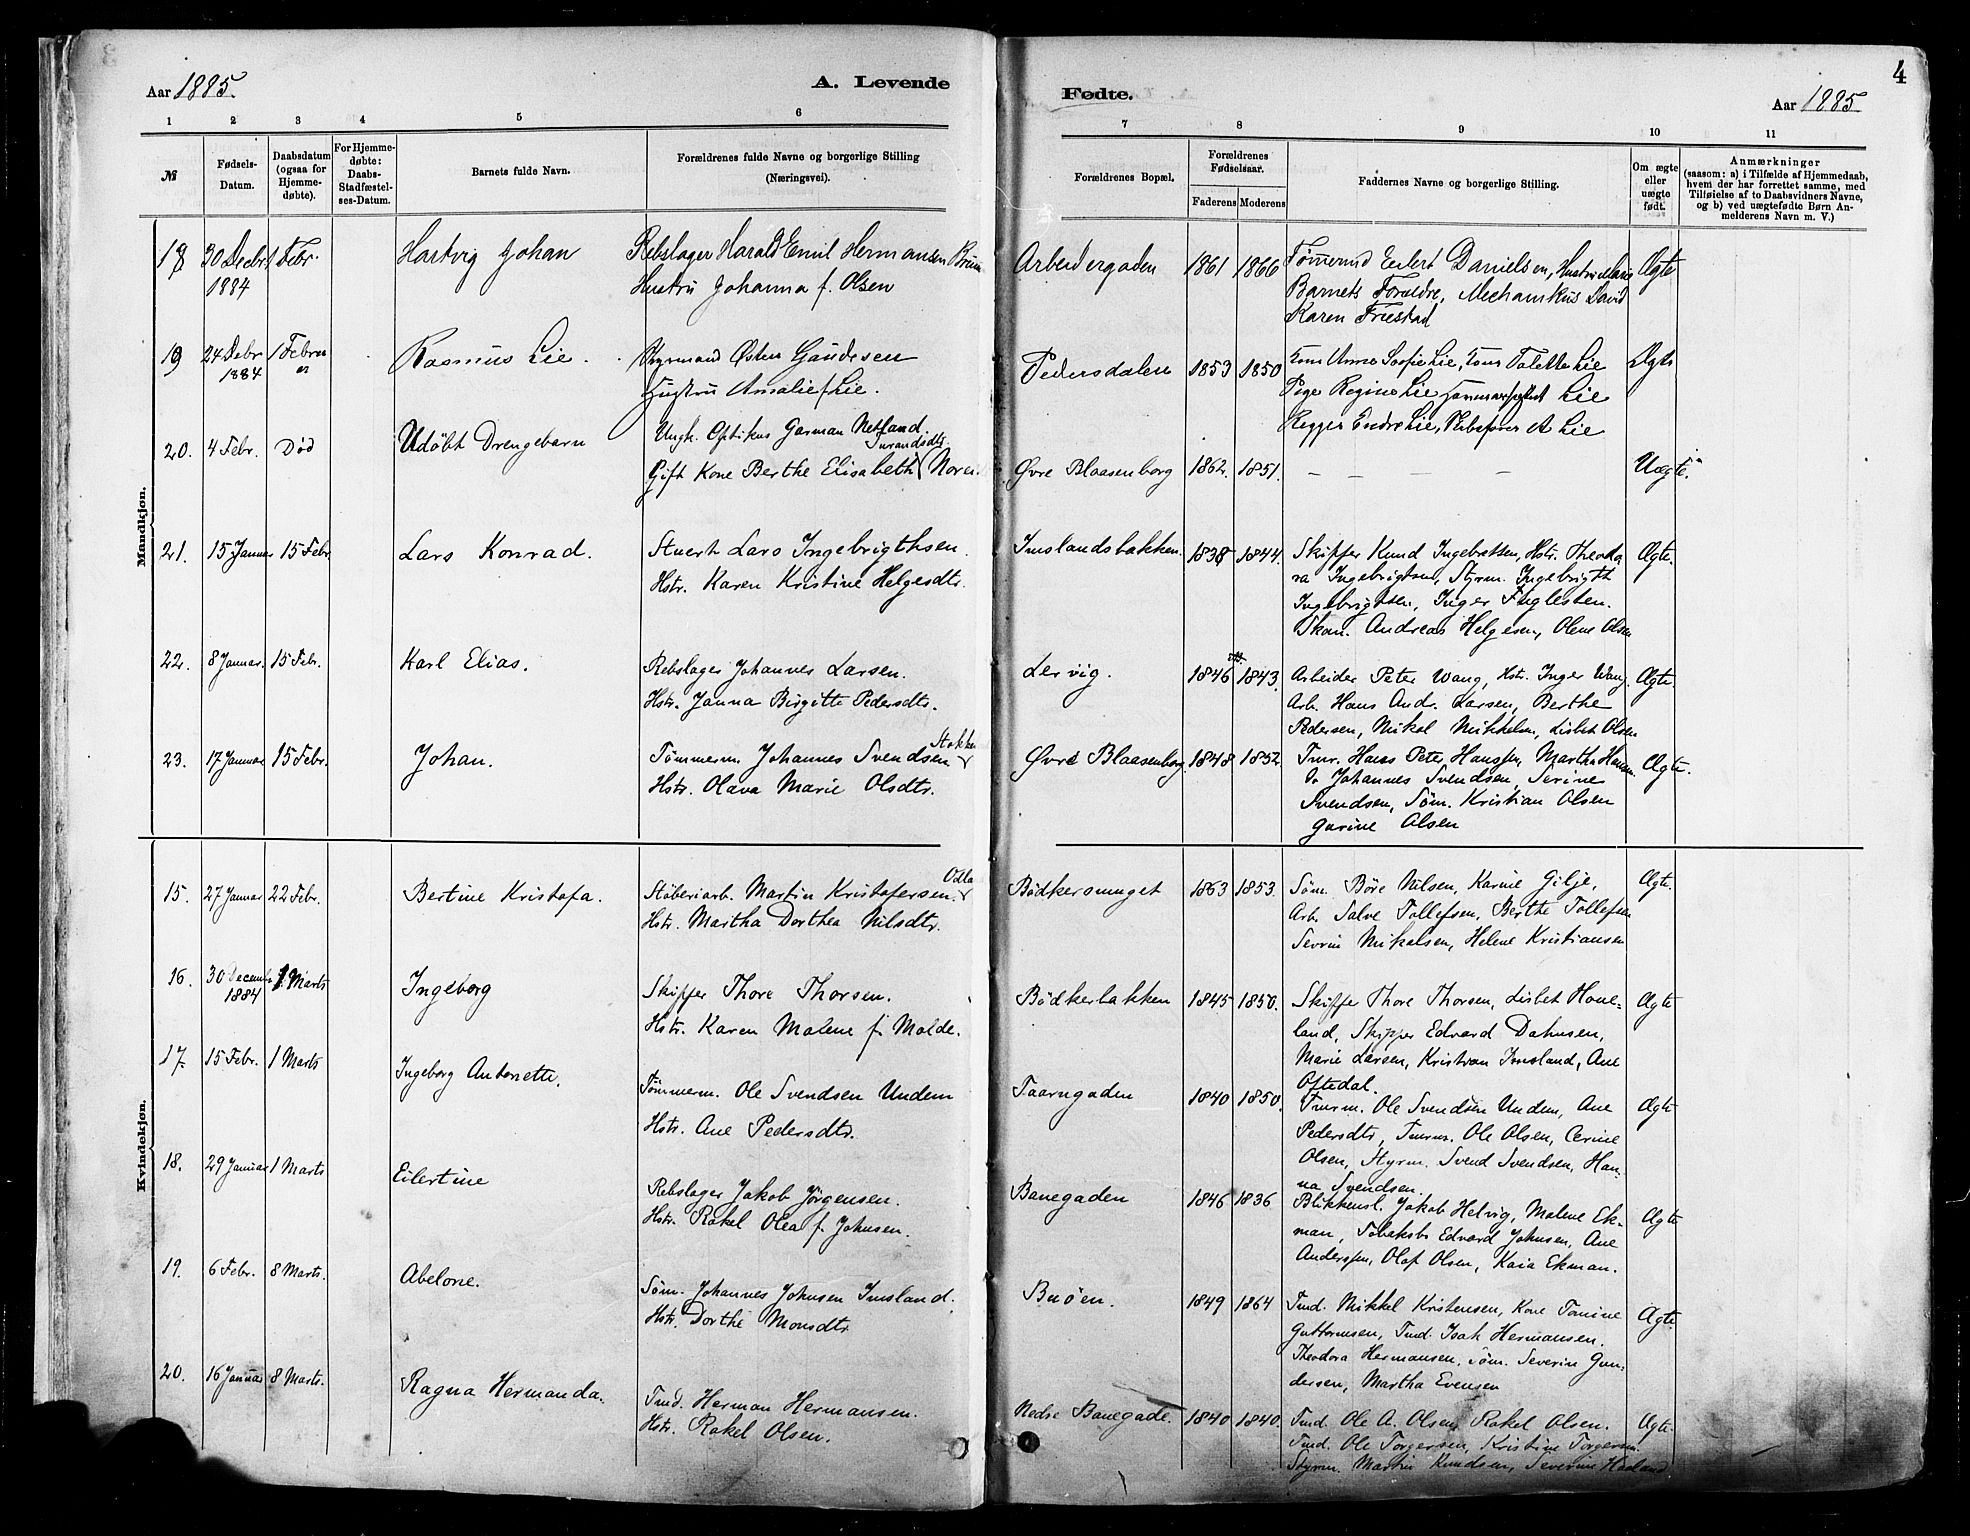 Aar 1885.
A. Levende
1 2 3 4 5 6
№
Fødsels-Datum.
Daabsdatum (ogsaa for Hjemme-døbte).
For Hjemme-døbte: Daabs-Stadfæstel-ses-Datum.
Barnets fulde Navn.
Forældrenes fulde Navne og borgerlige Stilling (Næringsvei).
Mandkjøn.
18 30 Decbr 1 Febr. Hartvig Johan Rebslager Harald Emil Hermansen Bruun
1884 Hustru Johanna f. Olsen
19 24 Debr 1 Febru Rasmus Lie. Styrmand Østen Gaudesen
1884 Hustru Amalie f Lie.
20. 4 Febr. Død Udöbt Drengebarn Ungk. Optikus Garman Netland.
Gift Kone Berthe Elisabeth
21. 15 Januar 15 Febr. Lars Konrad. Stuert Lars Ingebrigthsen.
Hstr. Karen Kristine Helgesdtr.
22. 8 Januar. 15 Febr. Karl Elias. Rebslager Johannes Larsen.
Hstr. Janna Birgitte Pedersdtr.
23. 17 Januar 15 Febr. Johan. Tömmerm. Johannes Svendsen Stokke
Hstr. Olava Marie Olsdtr.
Kvindekjøn.
15. 27 Januar 22 Febr. Bertine Kristofa. Stöberiarb. Martin Kristofersen.
Hstr. Martha Dorthea Nilsdtr.
16. 30 December 1 Marts Ingeborg Skipper Thore Thorsen.
1884 Hstr. Karen Malene f. Molde.
17. 15 Febr. 1 Marts Ingeborg Antonette. Tömmerm. Ole Svendsen Undem
Hstr. Ane Pedersdtr.
18. 29 Januar 1 Marts Eilertine Rebslager Jakob Jörgensen.
Hstr. Rakel Olea f. Johnsen.
19. 6 Febr. 8 Marts. Abelone. Söm. Johannes Johnsen Imsland.
Hstr. Dorthe Monsdtr.
20. 16 Januar 8 Marts. Ragna Hermanda. Tmd. Herman Hermansen.
Hstr. Rakel Olsen.
4
Fødte.
Aar 1885
7 8 9 10 11
Forældrenes Bopæl.
Forældrenes Fødselsaar.
Faderens Moderens
Faddernes Navne og borgerlige Stilling.
Om ægte eller uægte født.
Anmærkninger
(saasom: a) i Tilfælde af Hjemmedaab,
hvem der har forrettet samme, med
Tilføielse af to Daabsvidners Navne,
og b) ved uægtefødte Børn An-
melderens Navn m. V.)
Arbeidergaden 1861 1866 Tømmermd Eilert Danielsen, Hustru Marie Ægte
Barnets Forældre, Mechanikus David
Karen Friestad
Pedersdalen 1853 1850 Kone Anne Sofie Lie, Kone Talette Lie Ægte
Pige Regine Lie Lie
Endre Lie, A Lie
Øvre Blaasenborg 1862. 1851. — — — Uægte.
Imslandsbakken. 1838 1844. Skipper Knud Ingebretsen, Hstr. Theodo- Ægte.
ra Ingebrigtsen, Styrm. Ingebrigt
Ingebrigtsen, Inger Fuglesten.
Skom. Andreas Helgesen, Olene Olsen
Lervig. 1846 1843. Arbeider Peter Wang, Hstr. Inger Wang. Ægte.
Arb. Hans Andr. Larsen, Berthe
Pedersen, Nikol Mikkelsen, Lisbet Olsen
Øvre Blaasenborg. 1848 1852. Tmr. Hans Peter Hanssen, Martha Hansen. Ægte.
Do Johannes Svendsen, Serine
Svendsen, Söm. Kristian Olsen
Gurine Olsen
Bödkersmuget 1863 1853. Söm. Böre Nilsen, Karine Gilje, Ægte.
Arb. Salve Tollefsen, Berthe Tollefsen
Sevrin Mikalsen, Helene Kristiansen
Bödkerbakken 1845 1850. Skipper Thore Thorsen, Lisbet Hove- Ægte
land, Skipper Edvard Dahnsen,
Marie Larsen, Kristian Imsland, Ane
Oftedal.
Taarngaden 1840 1850. Tmrm. Ole Svendsen Undem, Ane Ægte
Pedersdtr, Tmrm. Ole Olsen, Cerine
Olsen, Styrm. Svend Svendsen, Han-
na Svendsen.
Banegaden 1846 1836 Blikkensl. Jakob Helvig, Malene Ek- Ægte
man, Tobaksbs Edvard Johnsen, Ane
Anderssen, Olaf Olsen, Kaia Ekman.
Buöen. 1849 1864 Tmd. Mikkel Kristensen, Kone Tonine Ægte.
Guttormsen, Tmd. Isak Hermansen.
Theodora Hermansen, Söm. Severin Gun-
dersen, Martha Evensen
Nedre Banegade. 1840 1840. Tmd. Ole A. Olsen, Rakel Olsen. Ægte.
Tmd. Ole Torgersen, Kristine Torgersen.
Styrm. Martin Knudsen, Severine Haaland